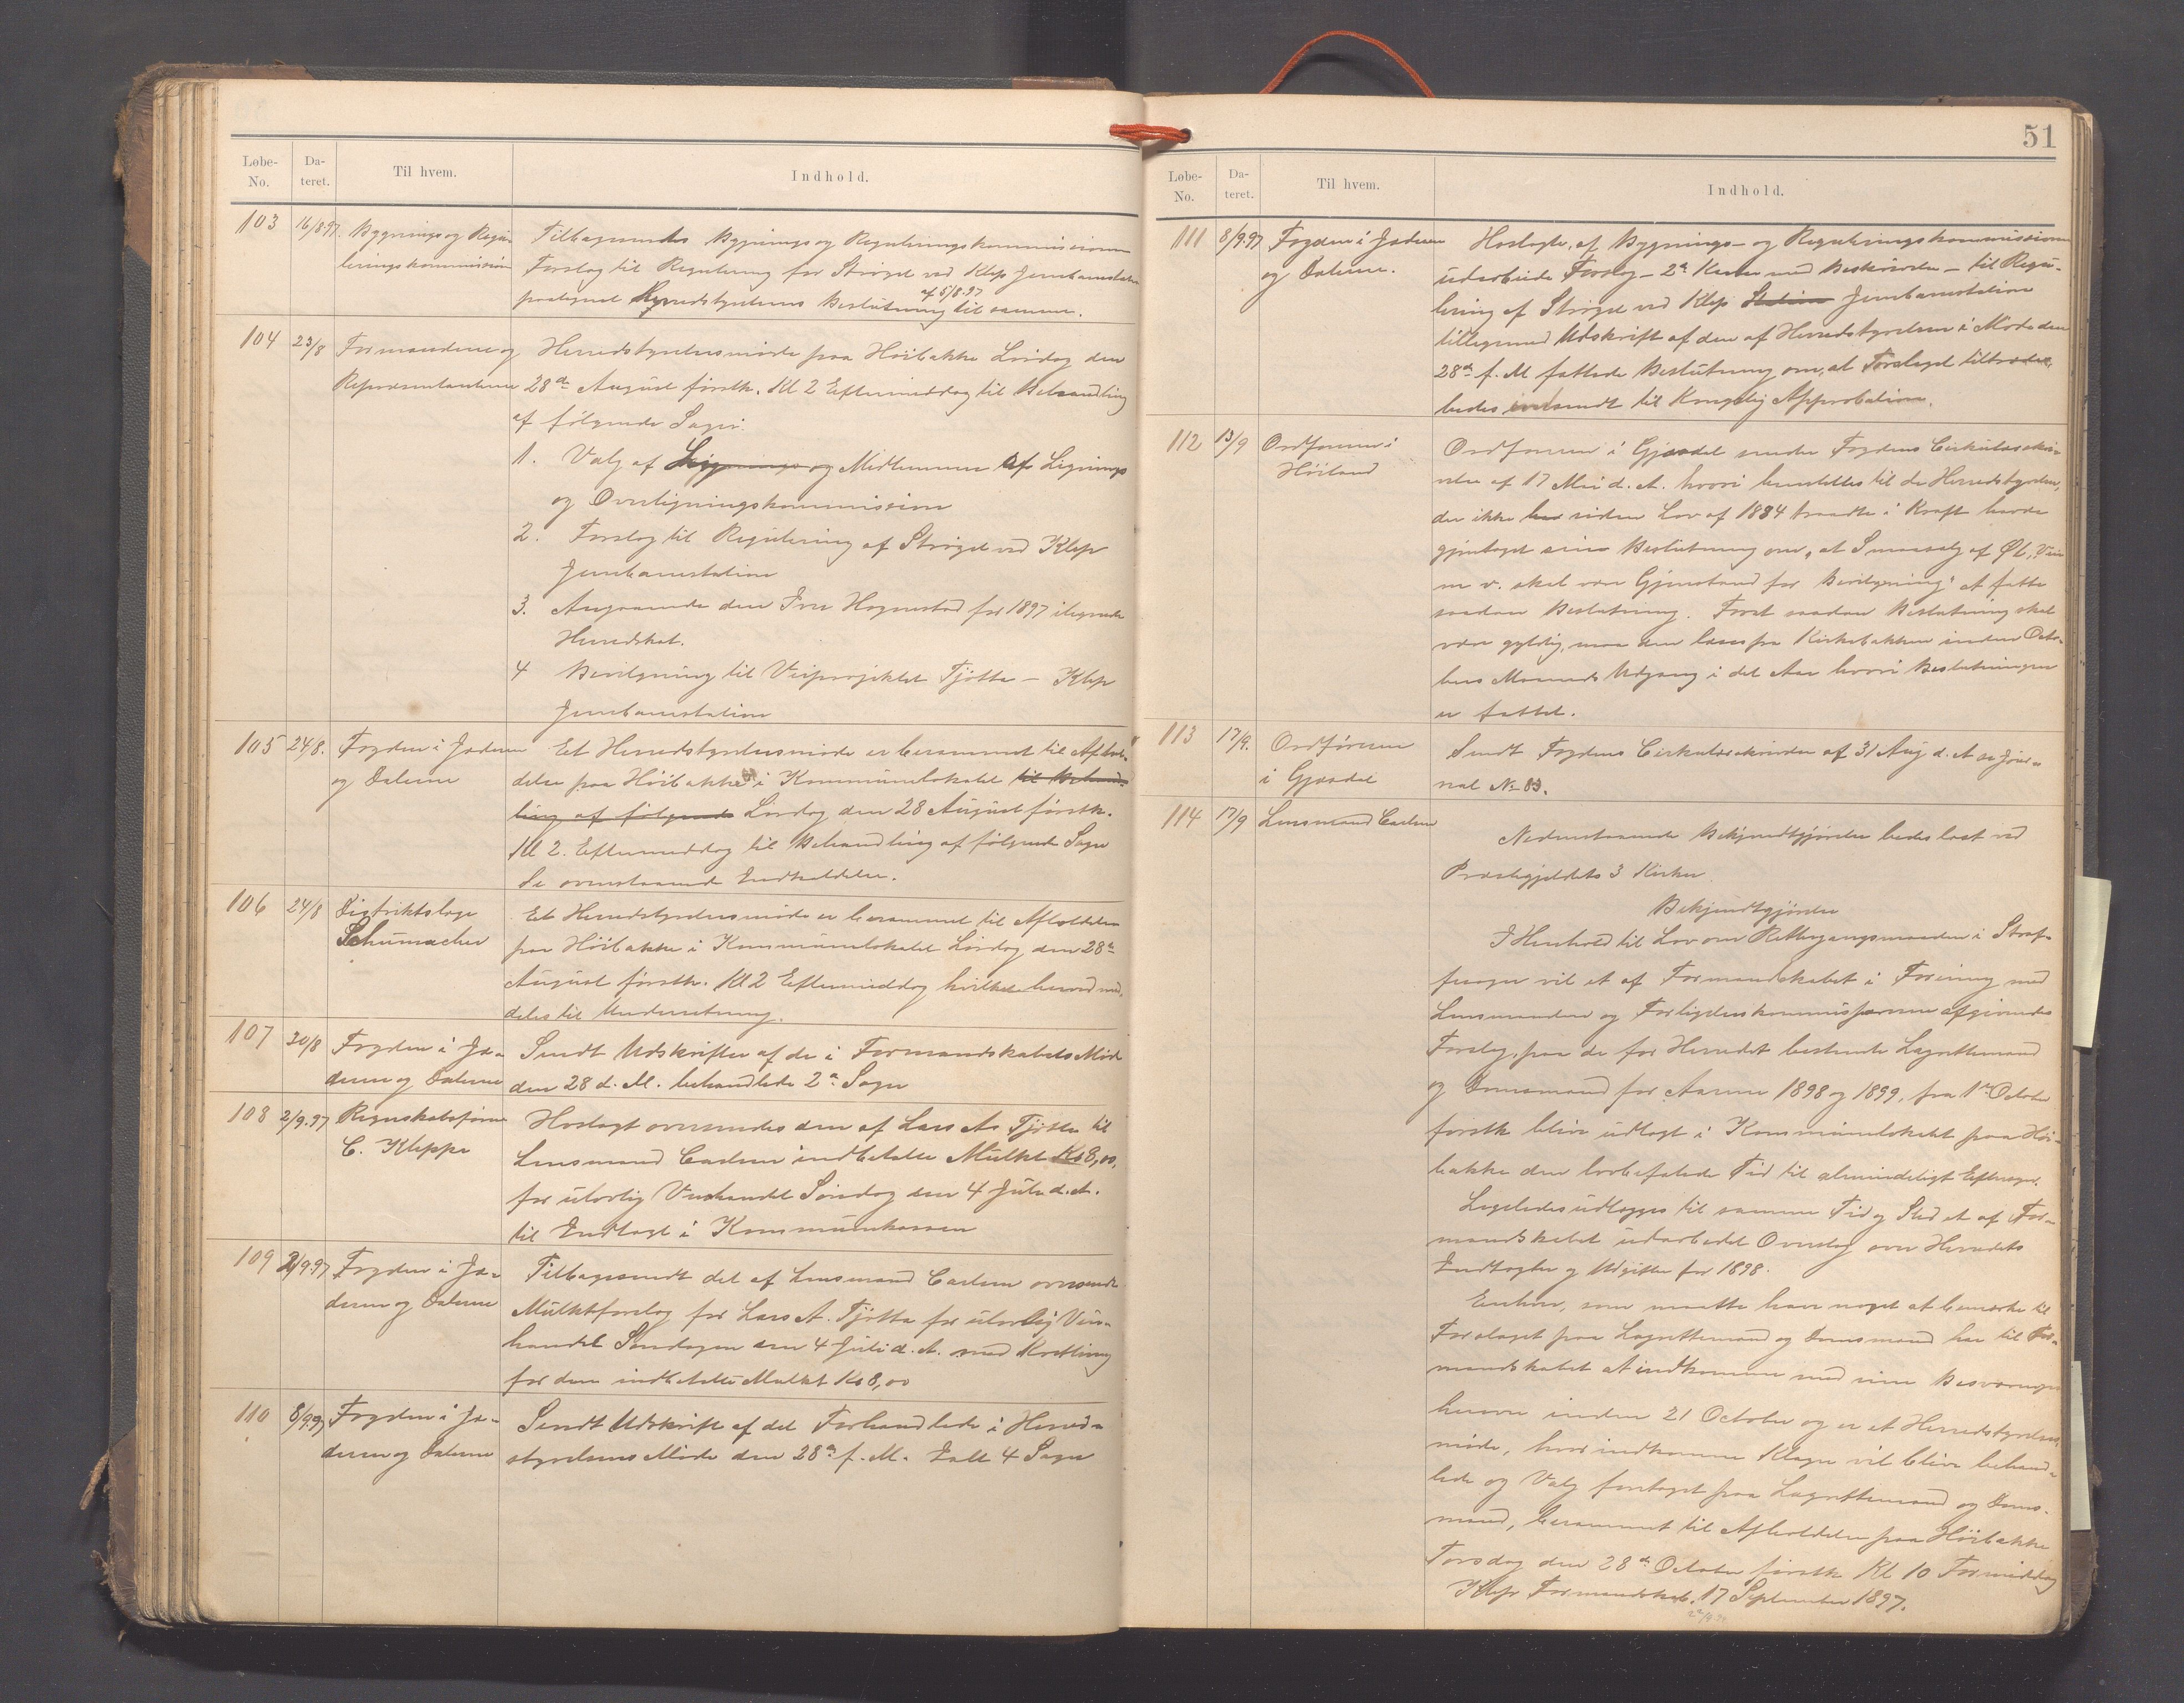 Løbe-No. Da-teret. Til hvem. Indhold.
103 16/8.97. Bygnings og Regu-
leringskommission
Tilbagesendes Bygnings og Reguleringskommissionens
Forslag til Regulering for Strøget ved Klep Jernbanestation
paategnet Herredstyrelsens Beslutning af 5/8.97 til samme.
104 23/8 Formændene og
Repræsentanterne
Herredstyrelsesmøde paa Høibakke Lørdag den
28de August førstk. Kl 2 Eftermiddag til Behandling
af følgende Sager:
1. Valg af Lignings og Medlemmer af Lignings
og Overligningskommission
2. Forslag til Regulering af Strøget ved Klep
Jernbanestation
3. Angaaende den Iver Hognestad for 1897 ilignede
Herredskat.
4 Bevilgning til Veiprojektet Tjøtta – Klep
Jernbanestation
105 24/8. Fogden i Jæderen
og Dalerne
Et Herredstyrelsesmøde er berammet til Afhol-
delse paa Høibakke i Kommunelokalet til Behand-
ling af følgende Lørdag den 28 August førstk.
Kl 2. Eftermiddag til Behandling af følgende Sager
Se ovenstaaende Indkaldelse.
106 24/8 Distriktslæge
Schumacher
Et Herredstyrelsesmøde er berammet til Afholdelse
paa Høibakke i Kommunelokalet Lørdag den 28de
August førstk. Kl 2 Eftermiddag hvilket herved med-
deles til Underretning.
107 30/8 Fogden i Jæ-
deren og Dalerne
Sendt Udskrifter af de i Formandskabets Møde
den 28 d. M. behandlede 2de Sager
108 2/9.97 Regnskabsfører
C. Kleppe
Hoslagt oversendes den af Lars As Tjøtta til
Lensmand Carlsen indbetalte Mulkt Kr 8,00.
for ulovlig Vinhandel Søndag den 4 Juli d. A.
til Indtægt i Kommunekassen
109 2/9.97 Fogden i Jæ-
deren og Dalerne
Tilbagesendt det af Lensmand Carlsen oversendte
Mulktsforelæg for Lars A. Tjøtta for ulovlig Vin-
handel Søndagen den 4 Juli d. A. med Kvittering
for den indbetalte Mulkt Kr 8,00
110 8/9.97 Fogden i Jæ-
deren og Dalerne
Sendt Udskrift af det Forhandlede i Herred-
styrelsens Møde den 28de f. M. Ialt 4 Sager
51
Løbe-No. Da-teret. Til hvem. Indhold.
111 8/9.97 Fogden i Jæderen
og Dalerne.
Hoslagte, af Bygnings- og Reguleringskommissionen
udarbeide Forslag – 2de Karter med Beskrivelse – til Regu-
lering af Strøget ved Klep Station Jernbanestation
tilligemed Udskrift af den af Herredstyrelsen i Møde den
28de f. M fattede Beslutning om, at Forslaget tiltrædes,
bedes indsendt til Kongelig Approbation.
112 13/9 Ordføreren i
Høiland
Ordføreren i Gjesdal sender Fogdens Cirkulæreskri-
velse af 17 Mai d. A. hvori henstilles til de Herredstyrelser,
der ikke har siden Lov af 1884 traadte i Kraft havde
gjentaget sin Beslutning om, "at Smaasalg af Øl, Vin
m v. skal være Gjenstand for Bevilgning" at fatte
saadan Beslutning. Forat saadan Beslutning skal
være gyldig, maa den læses fra Kirkebakken inden Octo-
bers Maaneds Udgang i det Aar hvori Beslutningen
er fattet.
113 17/9. Ordføreren
i Gjesdal
Sendt Fogdens Cirkulæreskrivelse af 31 Aug d. A se Jour-
nal No 83.
114 17/9 Lensmand Carlsen
Nedenstaaende Bekjendtgjørelse bedes læst ved
Præstegjeldets 3 Kirker.
Bekjendtgjørelse
I Henhold til Lov om Rettergangsmaaden i Straf-
fesager vil et af Formandskabet i Forening med
Lensmanden og Forligelseskommissærerne afgivendes
Forslag, paa de for Herredet bestemte Lagrettemænd
og Domsmænd for Aarene 1898 og 1899, fra 1ste October
førstk blive udlagt i Kommunelokalet paa Høi-
bakke den lovbefalede Tid til almindeligt Eftersyn.
Ligeledes udlægges til samme Tid og Sted et af For-
mandskabet udarbeidet Overslag over Herredets
Indtægter og Udgifter for 1898.
Enhver, som maatte have noget at bemærke til
Forslaget paa Lagrettemænd og Domsmænd har til For-
mandskabet at indkomme med sine Besværinger
herover inden 21 October og er et Herredstyrelses-
møde, hvor indkomne Klager vil blive behand-
lede og Valg foretaget paa Lagrettemænd og Doms-
mænd, berammet til Afholdelse paa Høibakke
Torsdag den 28de October førstk Kl 10 Formiddag
Klep Formandskab. 17 September 1897.